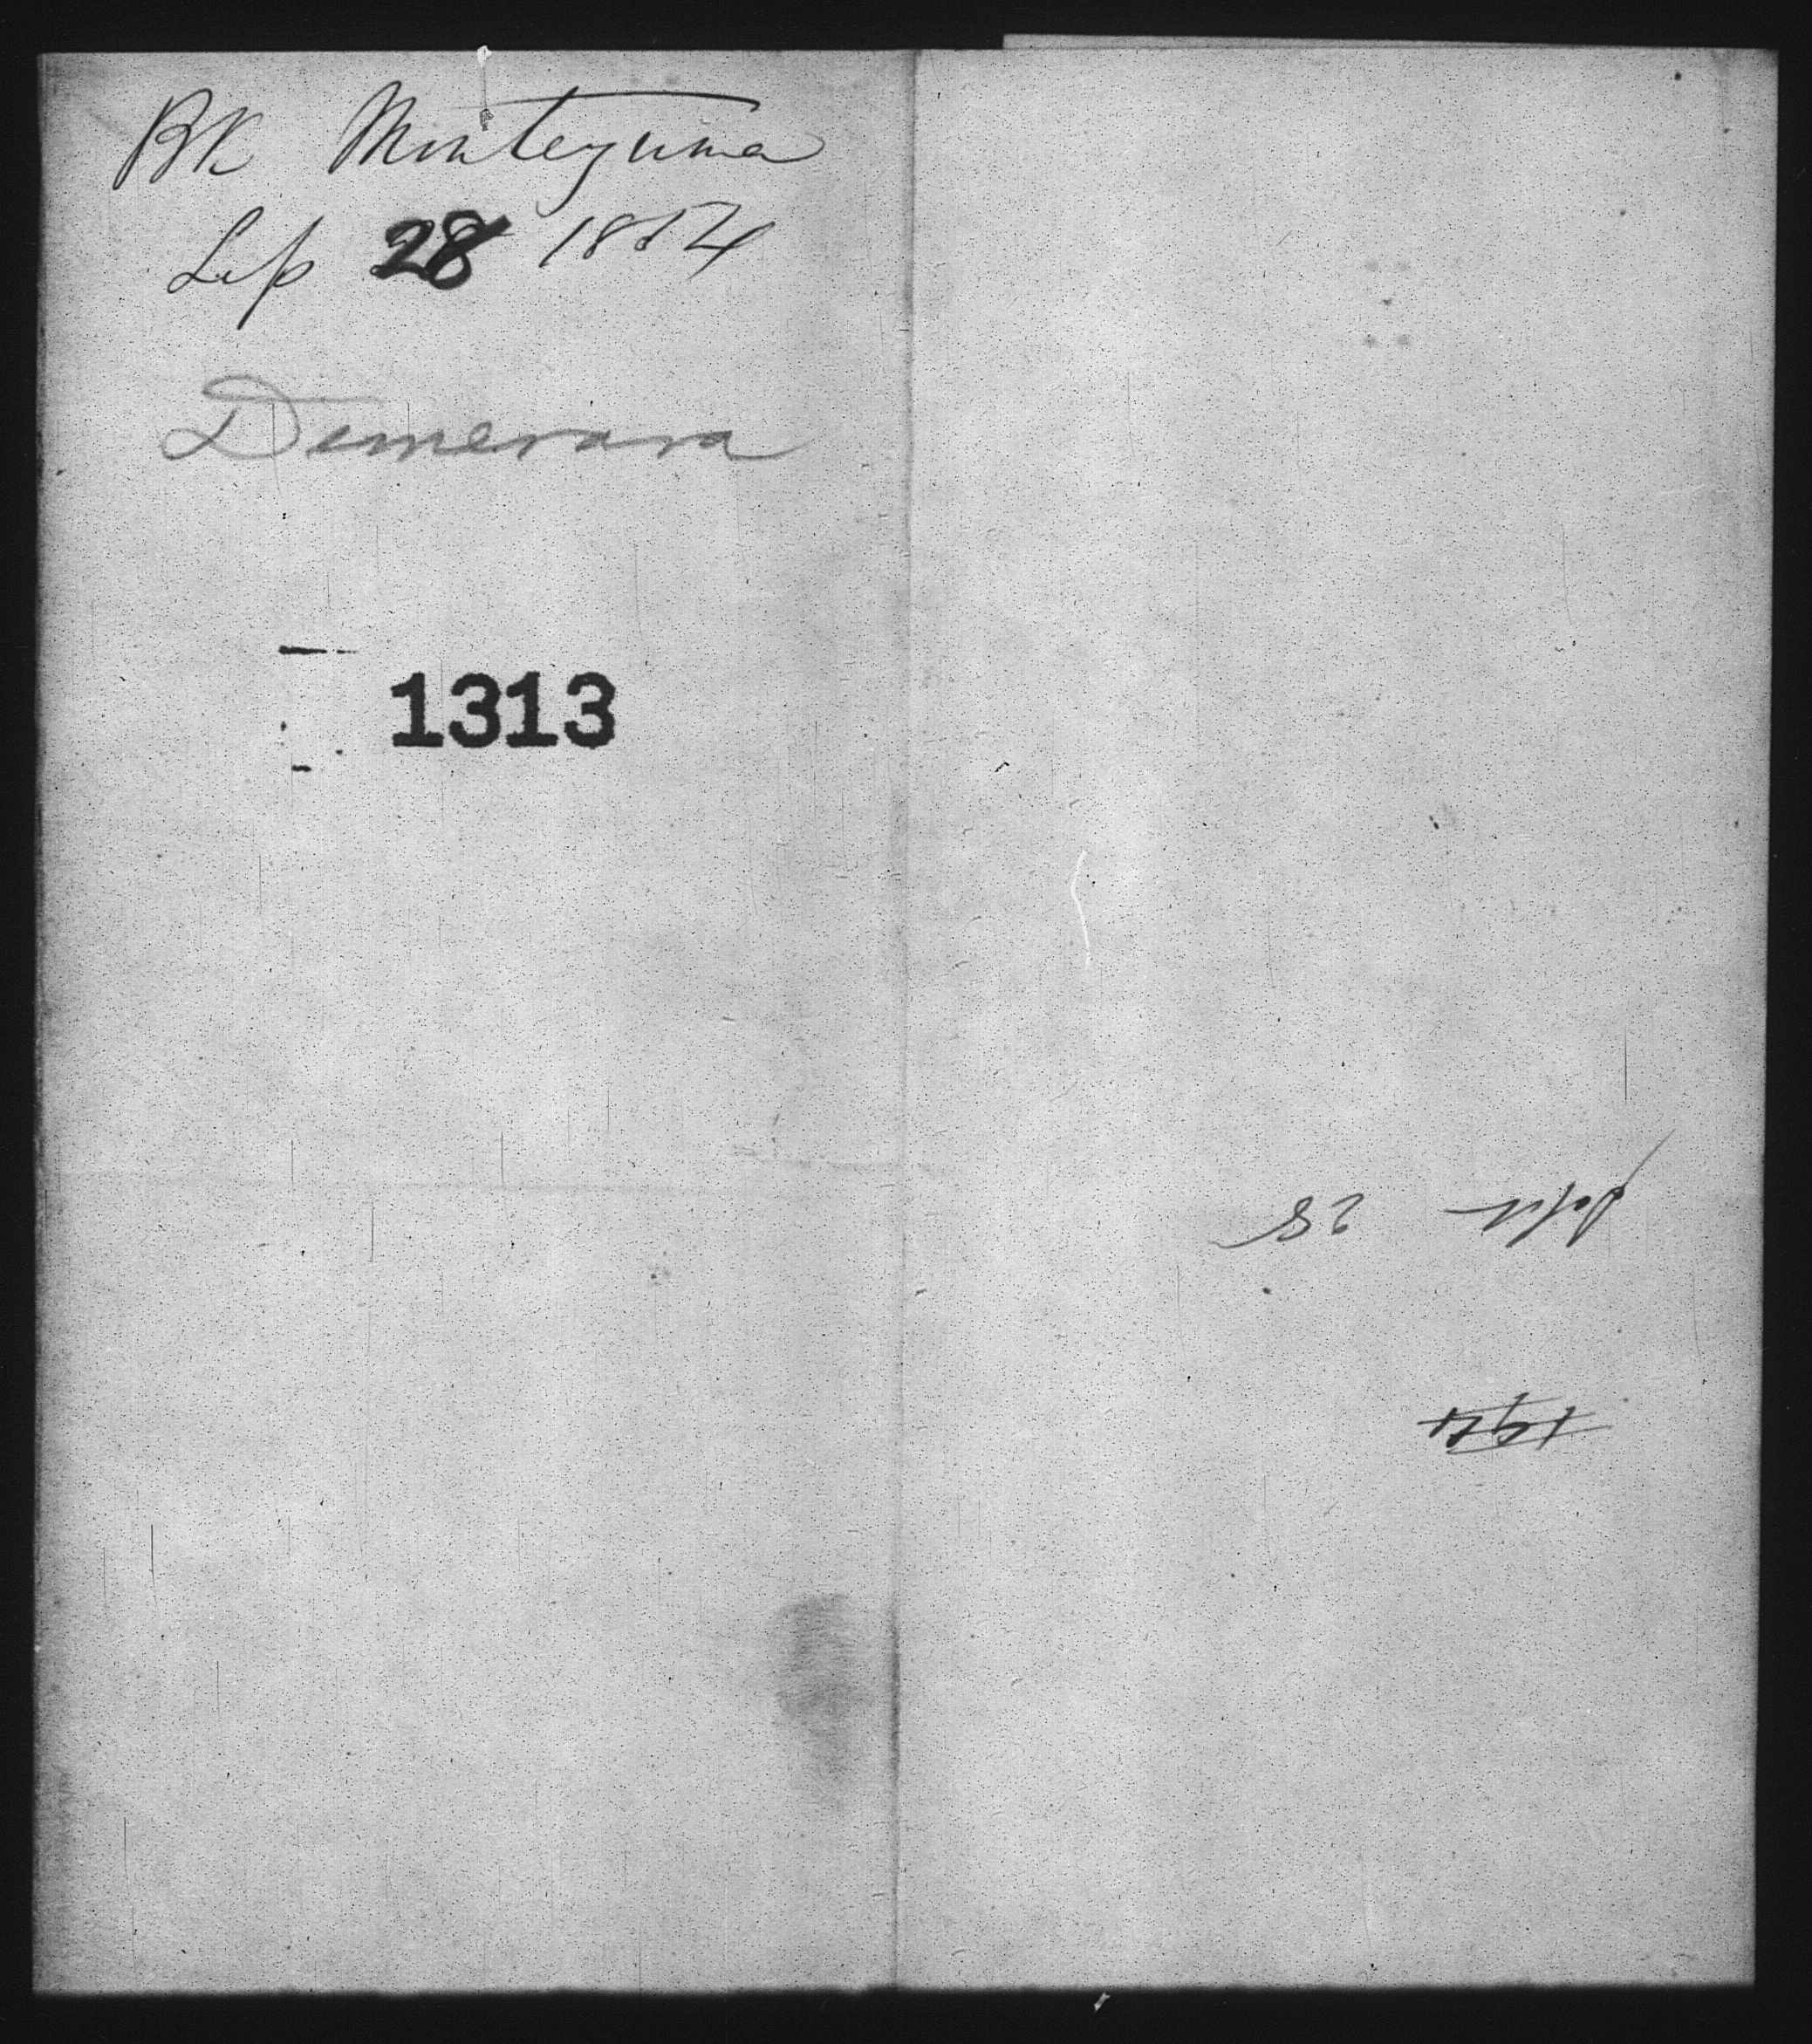 BK Montezuma
Sep 28 1854
Demerara
1313
Sept 28